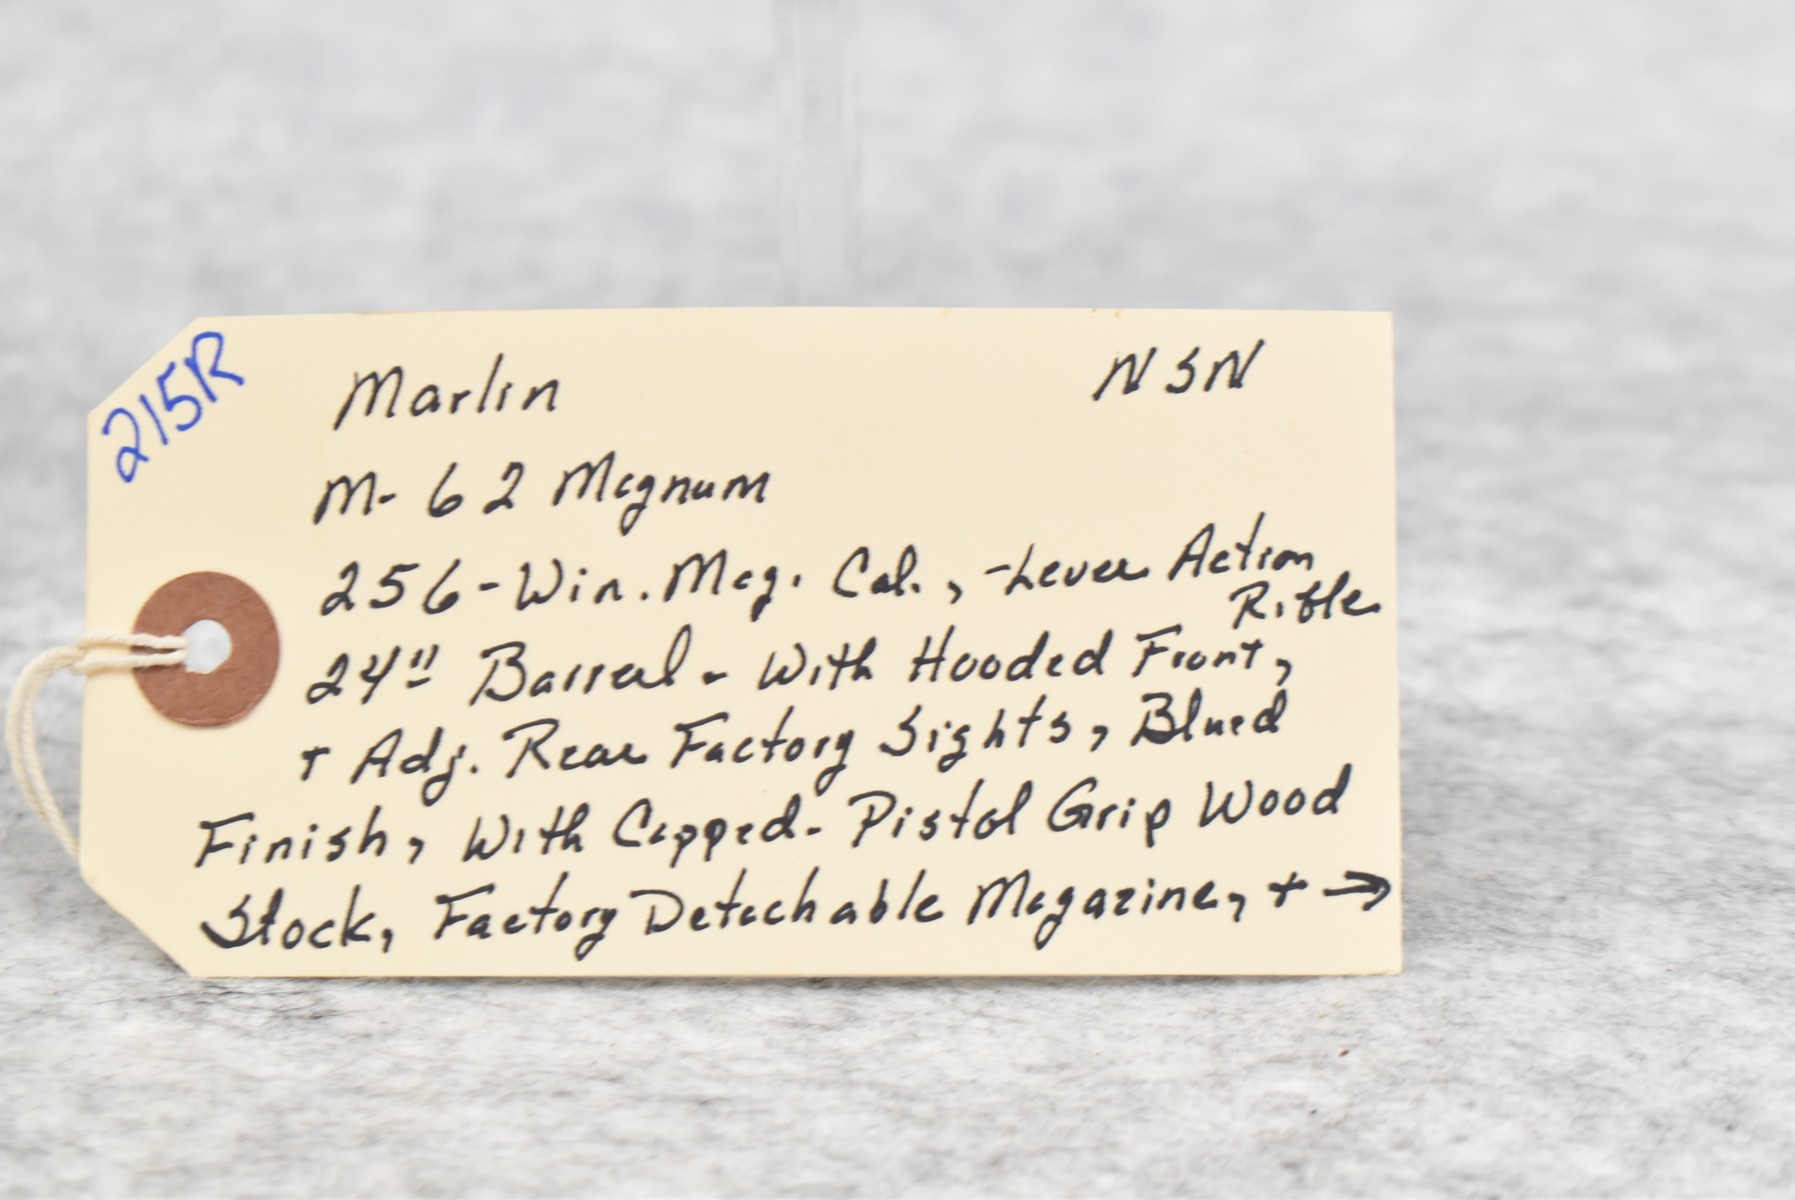 215R
Marlin NSN
M- 62 Magnum
256-Win. Mag. Cal., -Lever Action
Rifle
24" Barrel - With Hooded Front,
+ Adj. Rear Factory Sights, Blued
Finish, With Capped- Pistol Grip Wood
Stock, Factory Detachable Magazine, + →